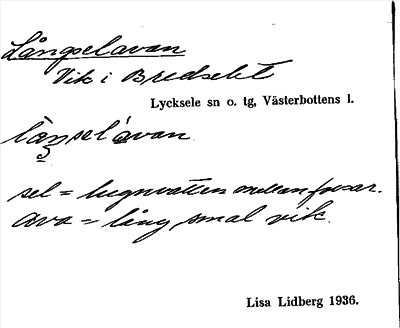 Långselavan
Vik i Bredselet
Lycksele sn o. tg, Västerbottens l.
làŋselávan
sel = lugnvatten mellan forsar.
ava = lång smal vik.
Lisa Lidberg 1936.